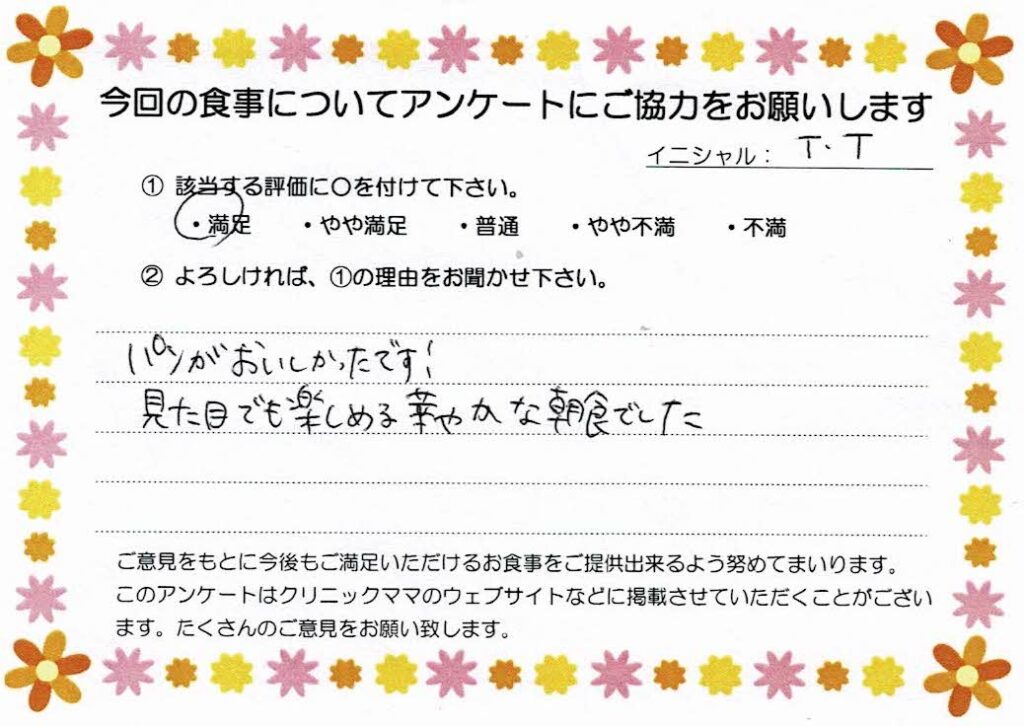 今回の食事についてアンケートにご協力をお願いします
イニシャル： T.T
① 該当する評価に○を付けて下さい。
・満足 ・やや満足 ・普通 ・やや不満 ・不満
② よろしければ、①の理由をお聞かせ下さい。
パンがおいしかったです!
見た目でも楽しめる華やかな朝食でした
ご意見をもとに今後もご満足いただけるお食事をご提供出来るよう努めてまいります。
このアンケートはクリニックママのウェブサイトなどに掲載させていただくことがござい
ます。たくさんのご意見をお願い致します。